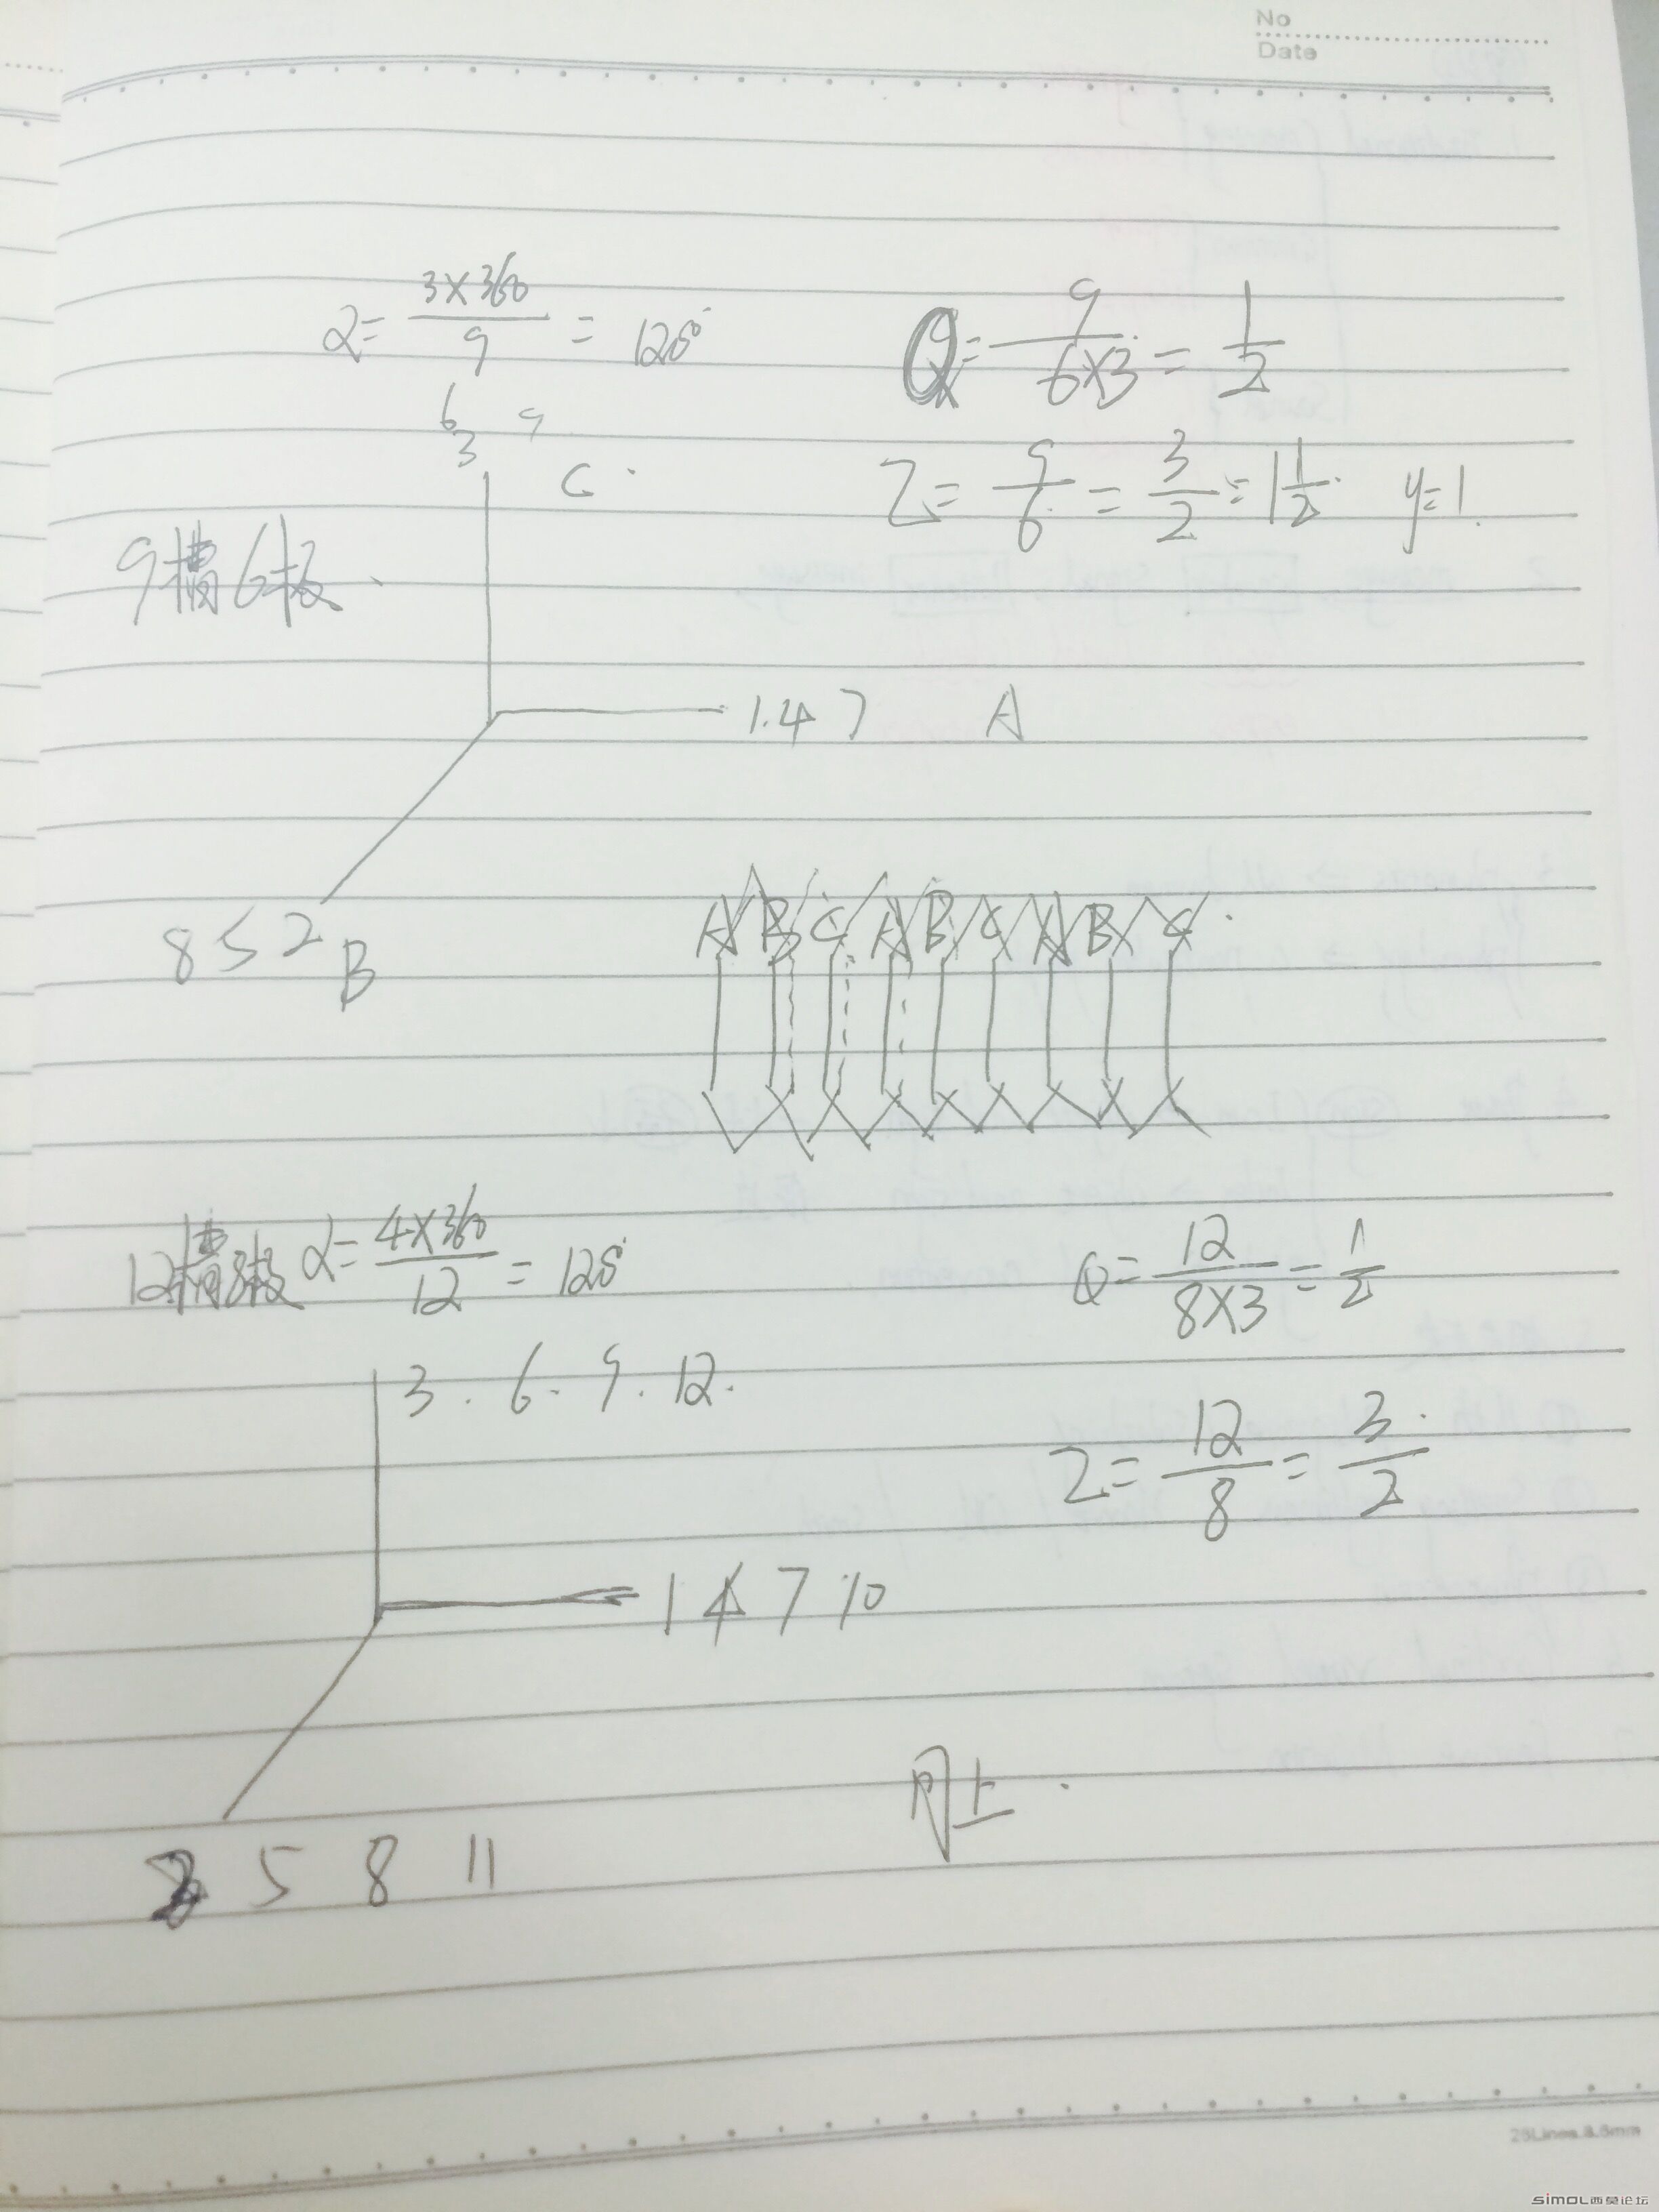 No
Date
α = 3×360 / 9 = 120°
Q = 9 / 6×3 = 1/2
6
3 9
C
Z = 9/6 = 3/2 = 1 1/2 y=1
9槽6极
1.4 7 A
8 5 2 B
A B C A B C A B C
12槽8极 α = 4×360 / 12 = 120°
Q = 12 / 8×3 = 1/2
3 . 6 . 9 . 12 .
Z = 12/8 = 3/2
1 4 7 10
同上
2 5 8 11
25Lines.8.6mm
simol西莫论坛